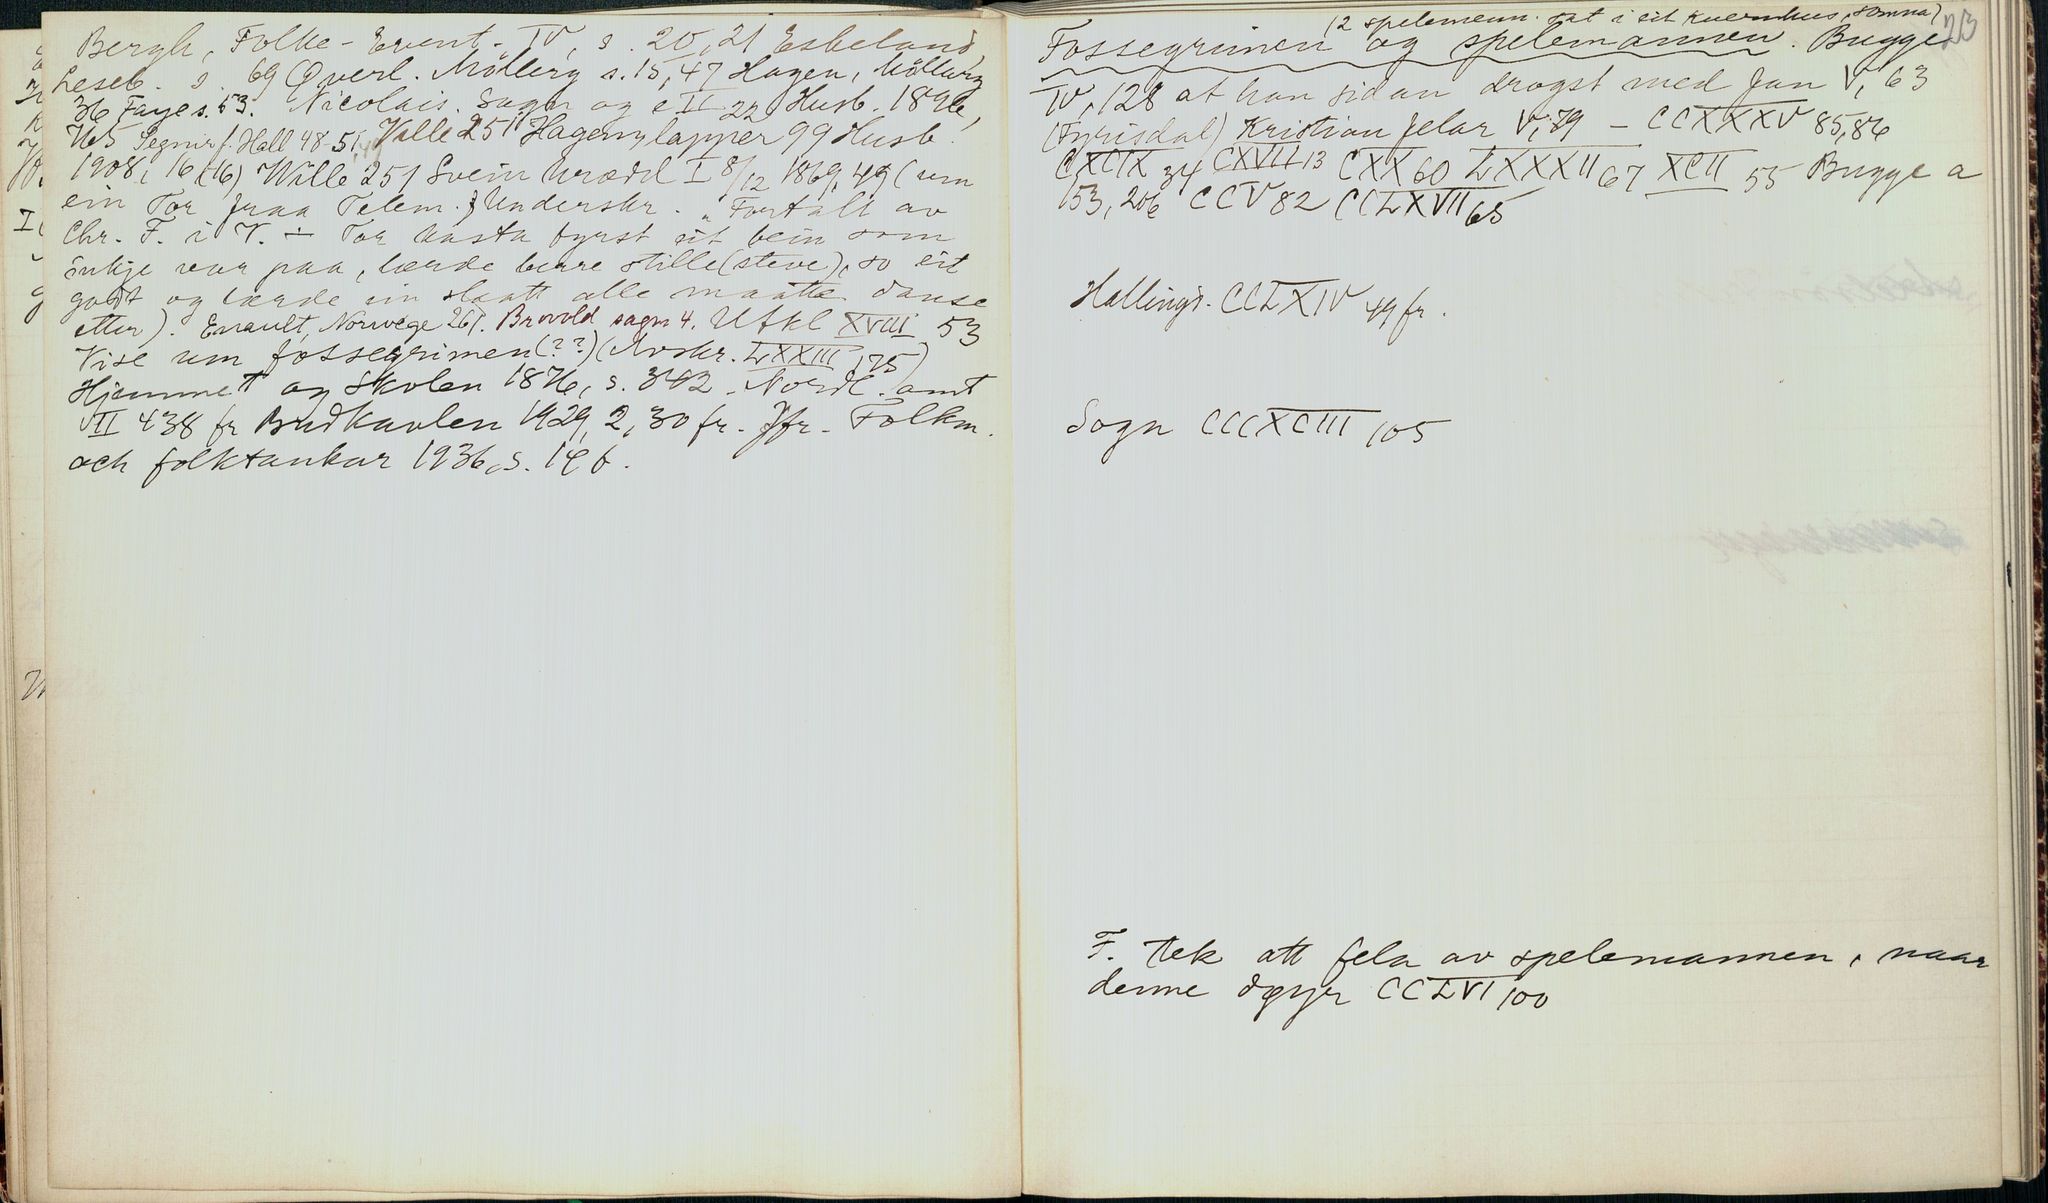 Bergh, Folke-Event. IV, s. 20, 21 Esbeland,
Leseb. s 69 Qverl. Mölberg s. 15, 47 Hagen, Möllarg
36 Faye s. 53. Nicolais. Sagn og e II 22 Husb. 1896,
765 Segnir f. Hall 48-51, Valle 251 Hagemylapper 99 Husb.
1908, 16 (16) Wille 251 Svein Uræd I 8/12 1869, 49 (um
ein Tor fraa Telem. Underskr. "Fortalt av
Chr. F. i V. ÷ Tor kasta fyrst eit bein som
inkje var paa, lærde berre stille (steve), so eit
godt og lærde ein slaatt alle maatte danse
etter). Enault, Norvège 261. Brovold sagn 4. Utkl XVIII 53
Vise um fossegrimen (??) (Avskr. LXXIII, 75)
Hjemmet og Skolen 1876, s. 342. Nordl. amt
VII 438 fr Budkavlen 1929, 2, 30 fr. Jfr. Folkm.
och folktankar 1936, s. 14 f.
(2 spelemenn sat i eit kvernhus, somna)
23
Fossegrimen og spelemannen. Bugge
IV, 128 at han sidan drogst med fan V, 63
(Fyrisdal) Kristian felar V, 79 – CCXXXV 85, 86
CXCIX 34 CXVII 13 CXX 60 LXXXII 67 XCII 55 Bugge a
153, 206 CCV 82 CCLXVII 65
Hallingd. CCLXIV 49 fr.
Sogn CCCXCIII 105
F. tek att fela av spelemannen, naar
denne døyr CCLVI 100